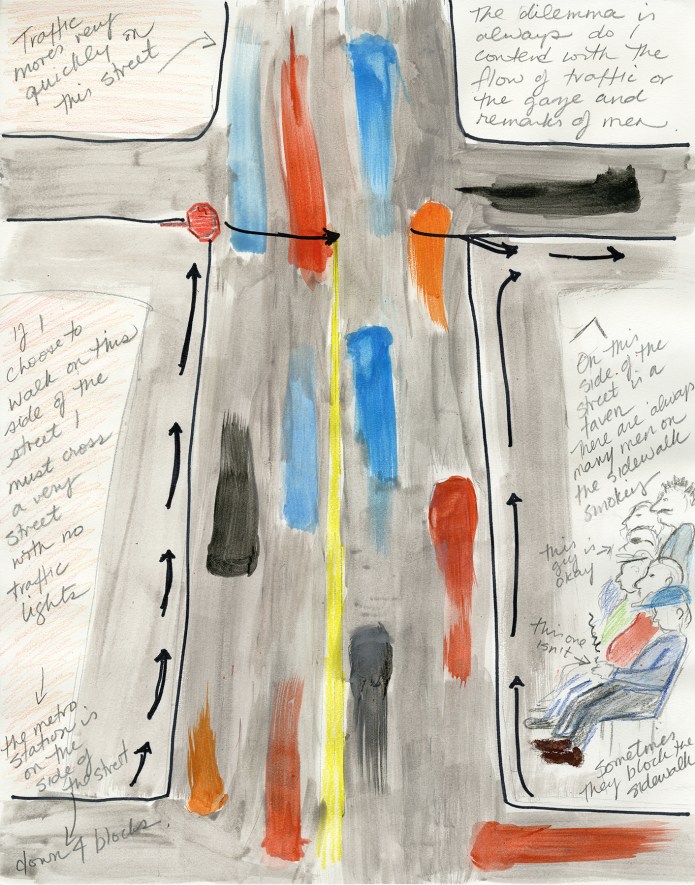 Traffic
moves very
quickly on
this street
The dilemma is
always do I
contend with the
flow of traffic or
the gaze and
remarks of men.
If I
choose to
walk on this
side of the
street I
must cross
a very
street
with no
traffic
lights
the metro
station is
on the
side of
the street
down 4 blocks.
On this
side of the
street is a
taven
There are always
many men on
the sidewalk
smoking
this
guy is
okay
this one
isn't
sometimes
they block the
sidewalk